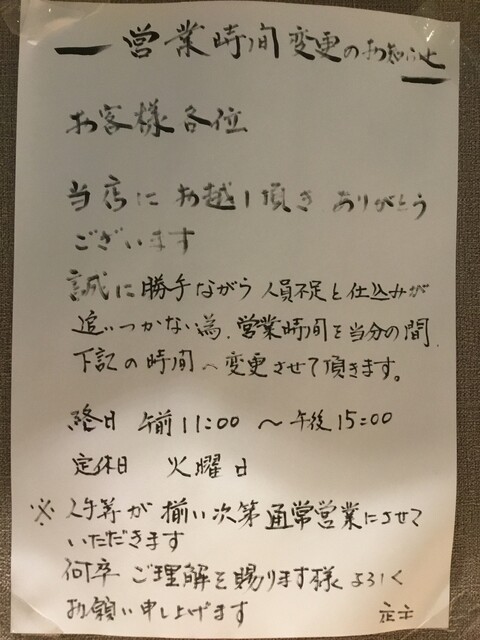 営業時間変更のお知らせ
お客様各位
当店にお越し頂きありがとう
ございます
誠に勝手ながら人員不足と仕込みが
追いつかない為、営業時間を当分の間、
下記の時間へ変更させて頂きます。
終日 午前11:00 〜午後15:00
定休日 火曜日
※人手等が揃い次第通常営業にさせて
いただきます
何卒ご理解を賜ります様よろしく
お願い申し上げます 店主